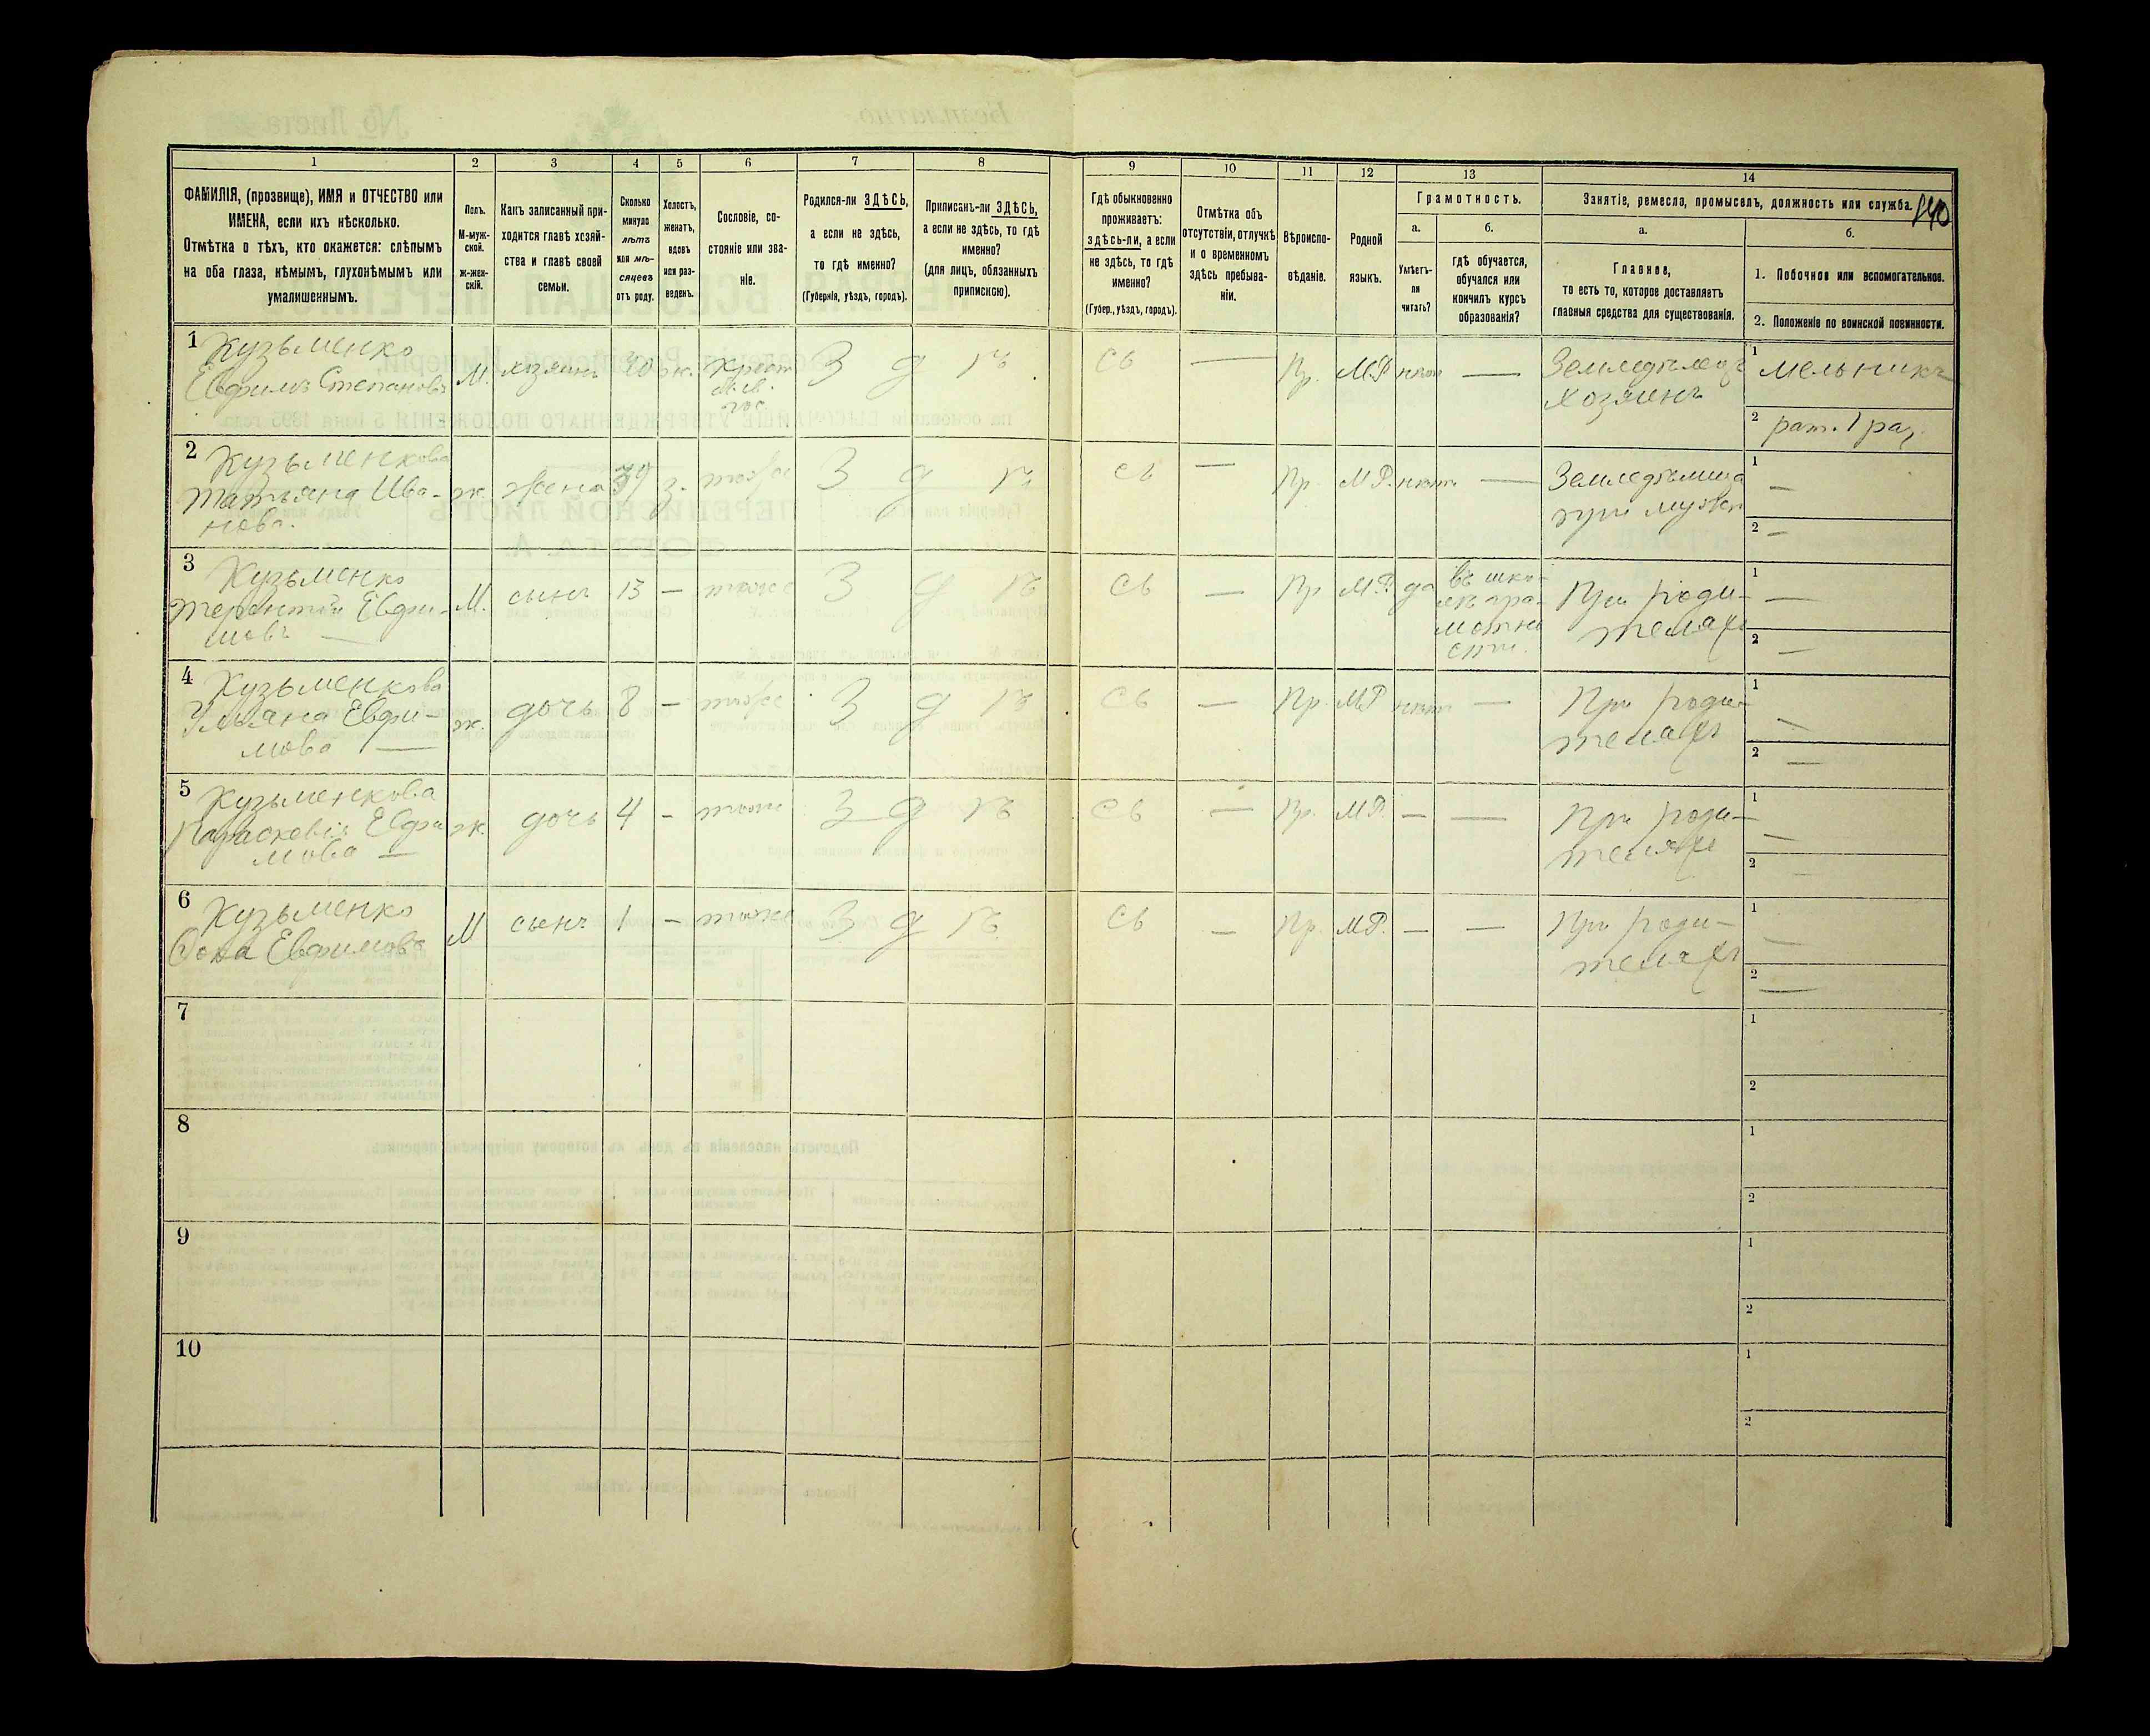 1 2 3 4 5 6 7 8 9 10 11 12 13 14
140
ФАМИЛІЯ, (прозвище), ИМЯ и ОТЧЕСТВО или
ИМЕНА, если ихъ нѣсколько.
Отмѣтка о тѣхъ, кто окажется: слѣпымъ
на оба глаза, нѣмымъ, глухонѣмымъ или
умалишеннымъ.
Полъ.
М-муж-
ской.
ж-жен-
скій.
Какъ записанный при-
ходится главѣ хозяй-
ства и главѣ своей
семьи.
Сколько
минуло
лѣтъ
или мѣ-
сяцевъ
отъ роду.
Холостъ,
женатъ,
вдовъ
или раз-
веденъ.
Сословіе, со-
стояніе или зва-
ніе.
Родился-ли ЗДѢСЬ,
а если не здѣсь,
то гдѣ именно?
(Губернія, уѣздъ, городъ).
Приписанъ-ли ЗДѢСЬ,
а если не здѣсь, то гдѣ
именно?
(для лицъ, обязанныхъ
припискою).
Гдѣ обыкновенно
проживаетъ:
здѣсь-ли, а если
не здѣсь, то гдѣ
именно?
(Губер., уѣздъ, городъ).
Отмѣтка объ
отсутствіи, отлучкѣ
и о временномъ
здѣсь пребыва-
ніи.
Вѣроиспо-
вѣданіе.
Родной
языкъ.
Грамотность.
а.
Умѣетъ-
ли
читать?
б.
гдѣ обучается,
обучался или
кончилъ курсъ
образованія?
Занятіе, ремесло, промыселъ, должность или служба.
а.
Главное,
то есть то, которое доставляетъ
главныя средства для существованія.
б.
1. Побочное или вспомогательное.
2. Положеніе по воинской повинности.
1 Кузьменко
Евфимъ Степановъ
М. хозяинъ ж. Крест.
З д ѣ сь — Пр. М.Р. нѣтъ —
Земледѣлецъ
хозяинъ
1 мельникъ
2 рат. 1 раз.
2 Кузьменкова
Татьяна Ива-
нова.
ж. жена 39 з. тоже З д ѣ сь — Пр. М.Р. нѣтъ —
Земледѣлица
при мужѣ
1 —
2 —
3 Кузьменко
Терентій Евфи-
мовъ —
М. сынъ 13 — тоже З д ѣ сь — Пр М.Р. да
въ шко-
лѣ гра-
мотно
сти.
При роди-
теляхъ
1 —
2 —
4 Кузьменкова
Ульяна Евфи-
мова —
ж. дочь 8 — тоже З д ѣ сь — Пр. М.Р. нѣтъ —
При роди-
теляхъ
1 —
2 —
5 Кузьменкова
Парасковія Евфи
мова —
ж. дочь 4 — тоже З д ѣ сь — Пр. М.Р. — —
При роди-
теляхъ
1 —
2 —
6 Кузьменко
Евфимовъ
М сынъ 1 — тоже З д ѣ сь — Пр. М.Р. — —
При роди-
теляхъ
1 —
2 —
7
1
2
8
1
2
9
1
2
10
1
2